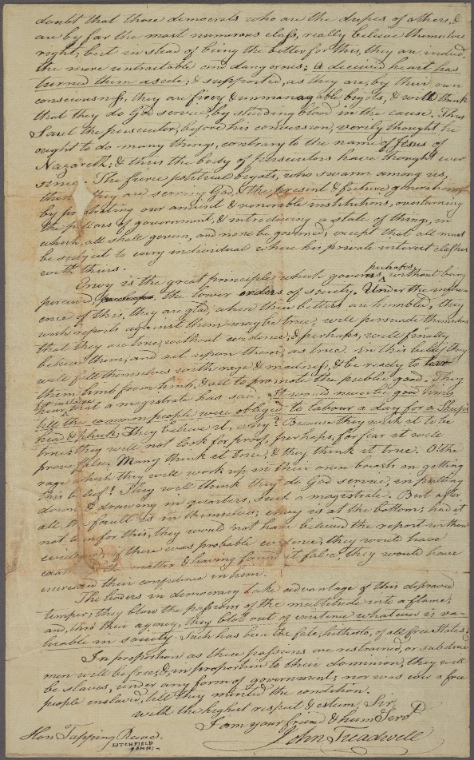 doubt that those democrats who are the dupes of others, &
are by far the most numerous class, really believe themselves
right; but instead of being the better for this, they are indeed
the more untractable and dangerous. A deceived heart has
turned them aside; & supported, as they are, by their own
consciousness, they are fiery & unmanagable bigots, & will think
that they do God service, by shedding blood in the cause. Thus
Saul the persecutor, before his conversion, verily thought he
ought to do many things, contrary to the name of Jesus of
Nazareth, & thus the body of persecutors have thought ever
since. The fierce political bigots, who swarm among us,
think they are serving God & the present & future generations
by prostrating our ancient & venerable institutions, overturning
the pillars of government, & introducing a state of things, in
which all shall govern, and none be governed, except that all must
be subject to every individual where his private interest clashes
with theirs.
Envy is the great principle which governs, perhaps, without being
perceived, the lower orders of society. Under the influ-
ence of this, they are glad, when their betters are humbled, they
wish reports against them may be true; will persuade themselves
that they are true, without evidence, & perhaps, will finally
believe them, and act upon them, as true. In this belief, they
will fill themselves with rage & madness, & be ready to tear
them limb from limb, & all to promote the public good. They
hear, that a magistrate has said, It would never be good times
till the common people were obliged to labour a day for a Sheep's
head & pluck. They believe it, why? Because they wish it to be
true; they will not look for proof, perhaps, for fear it will
prove false. Many think it true, & they think it true. O the
rage which they will work up in their own breasts in getting
this belief! They will think they do God service, in pulling
down & drawing in quarters, such a magistrate. But after
all the fault is in themselves; envy is at the bottom; had it
not been for this, they would not have believed the report without
evidence; if there was probable evidence, they would have
examined the matter & having found it false, they would have
increased their confidence in him.
The leaders in democracy take advantage of this depraved
temper; they blow the passions of the multitude into a flame;
and, thro' their agency, they blow out of existence whatever is va-
luable in society. Such has been the fate, hitherto, of all free States.
In proportion as these passions are restrained, or subdued
men will be free; & in proportion to their dominion, they will
be slaves, under any form of government; nor was ever a free
people enslaved, till they merited the condition.
With the highest respect & esteem, Sir,
I am your friend & hum. Serv.t
John Treadwell
Hon. Tapping Reeve.
LITCHFIELD
CONN.